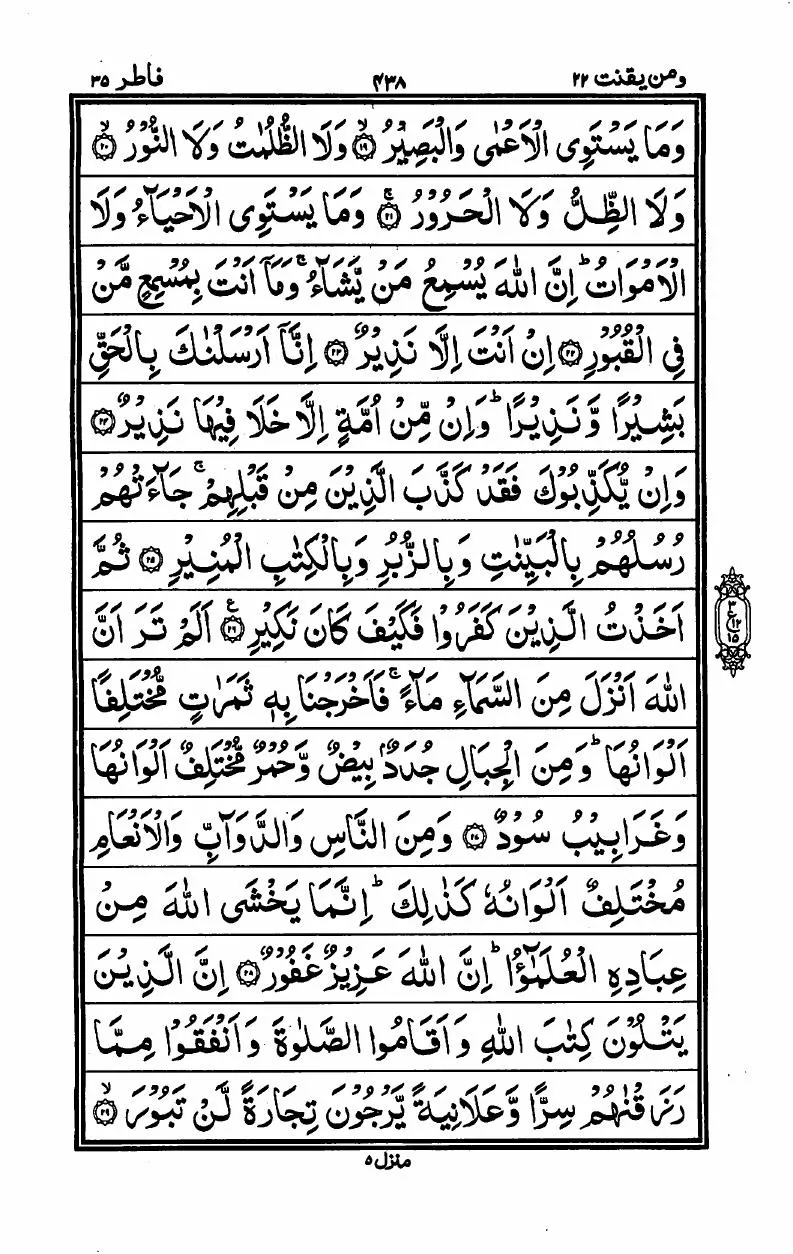 ومن يقنت ٢٢ ٤٣٨ فاطر ٣٥
وَمَا يَسْتَوِى الْاَعْمٰى وَالْبَصِيْرُ ۙ﴿۱۹﴾ وَلَا الظُّلُمٰتُ وَلَا النُّوْرُ ۙ﴿۲۰﴾
وَلَا الظِّلُّ وَلَا الْحَرُوْرُ ۚ﴿۲۱﴾ وَمَا يَسْتَوِى الْاَحْيَآءُ وَلَا
الْاَمْوَاتُ ؕ اِنَّ اللّٰهَ يُسْمِعُ مَنْ يَّشَآءُ ۚ وَمَاۤ اَنْتَ بِمُسْمِعٍ مَّنْ
فِى الْقُبُوْرِ ﴿۲۲﴾ اِنْ اَنْتَ اِلَّا نَذِيْرٌ ﴿۲۳﴾ اِنَّاۤ اَرْسَلْنٰكَ بِالْحَقِّ
بَشِيْرًا وَّنَذِيْرًا ؕ وَاِنْ مِّنْ اُمَّةٍ اِلَّا خَلَا فِيْهَا نَذِيْرٌ ﴿۲۴﴾
وَاِنْ يُّكَذِّبُوْكَ فَقَدْ كَذَّبَ الَّذِيْنَ مِنْ قَبْلِهِمْ ۚ جَآءَتْهُمْ
رُسُلُهُمْ بِالْبَيِّنٰتِ وَبِالزُّبُرِ وَبِالْكِتٰبِ الْمُنِيْرِ ﴿۲۵﴾ ثُمَّ
اَخَذْتُ الَّذِيْنَ كَفَرُوْا فَكَيْفَ كَانَ نَكِيْرِ ﴿۲۶﴾ ع اَلَمْ تَرَ اَنَّ
اللّٰهَ اَنْزَلَ مِنَ السَّمَآءِ مَآءً ۚ فَاَخْرَجْنَا بِهٖ ثَمَرٰتٍ مُّخْتَلِفًا
اَلْوَانُهَا ؕ وَمِنَ الْجِبَالِ جُدَدٌۢ بِيْضٌ وَّحُمْرٌ مُّخْتَلِفٌ اَلْوَانُهَا
وَغَرَابِيْبُ سُوْدٌ ﴿۲۷﴾ وَمِنَ النَّاسِ وَالدَّوَآبِّ وَالْاَنْعَامِ
مُخْتَلِفٌ اَلْوَانُهٗ كَذٰلِكَ ؕ اِنَّمَا يَخْشَى اللّٰهَ مِنْ
عِبَادِهِ الْعُلَمٰٓؤُا ؕ اِنَّ اللّٰهَ عَزِيْزٌ غَفُوْرٌ ﴿۲۸﴾ اِنَّ الَّذِيْنَ
يَتْلُوْنَ كِتٰبَ اللّٰهِ وَاَقَامُوا الصَّلٰوةَ وَاَنْفَقُوْا مِمَّا
رَزَقْنٰهُمْ سِرًّا وَّعَلَانِيَةً يَّرْجُوْنَ تِجَارَةً لَّنْ تَبُوْرَ ۙ﴿۲۹﴾
۳
ع ۱۲
۱۵
منزل ۵